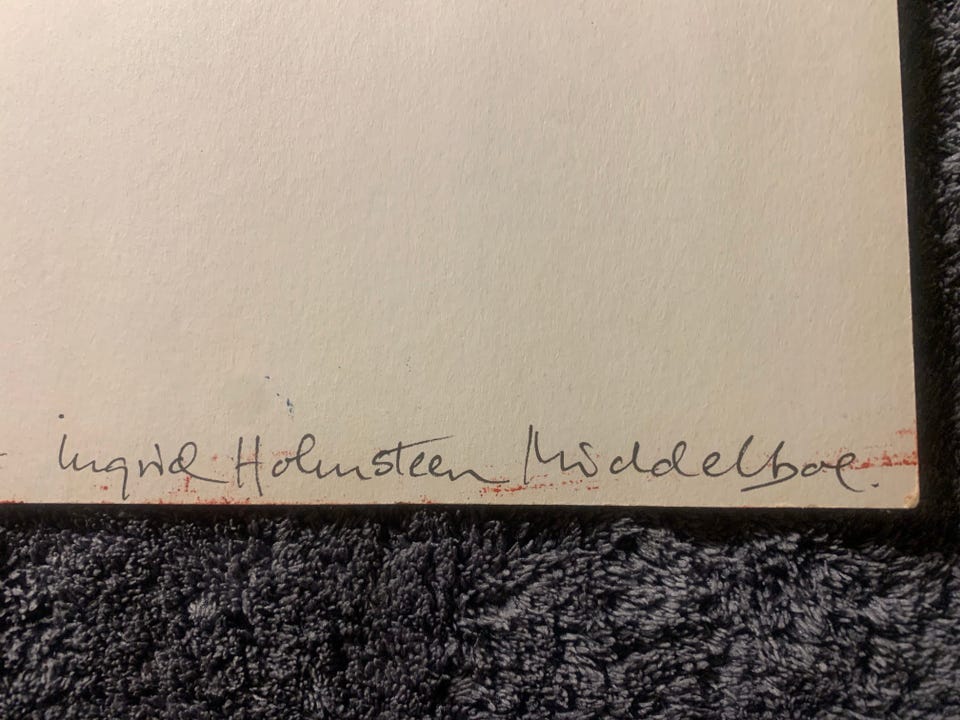 Ingrid Holmsteen Middelboe.